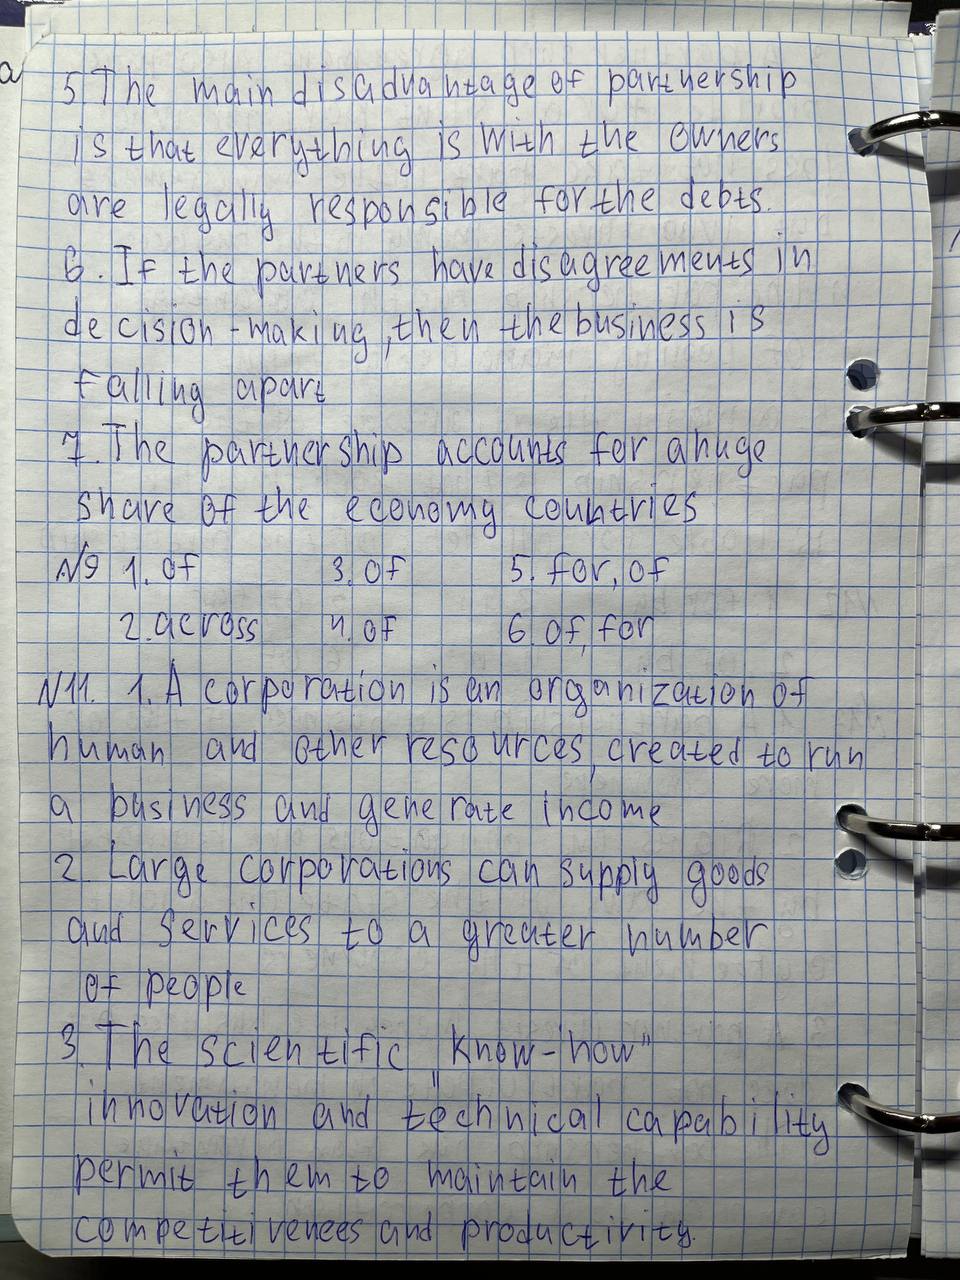 5. The main disadvantage of partnership
is that everything is with the owners
are legally responsible for the debts.
6. If the partners have disagreements in
decision-making, then the business is
falling apart
7. The partnership accounts for a huge
share of the economy countries
№9 1. of 3. of 5. for, of
2. across 4. of 6. of, for
№11. 1. A corporation is an organization of
human and other resources, created to run
a business and generate income
2. Large corporations can supply goods
and services to a greater number
of people
3. The scientific "know-how"
innovation and technical capability
permit them to maintain the
competitivenees and productivity.